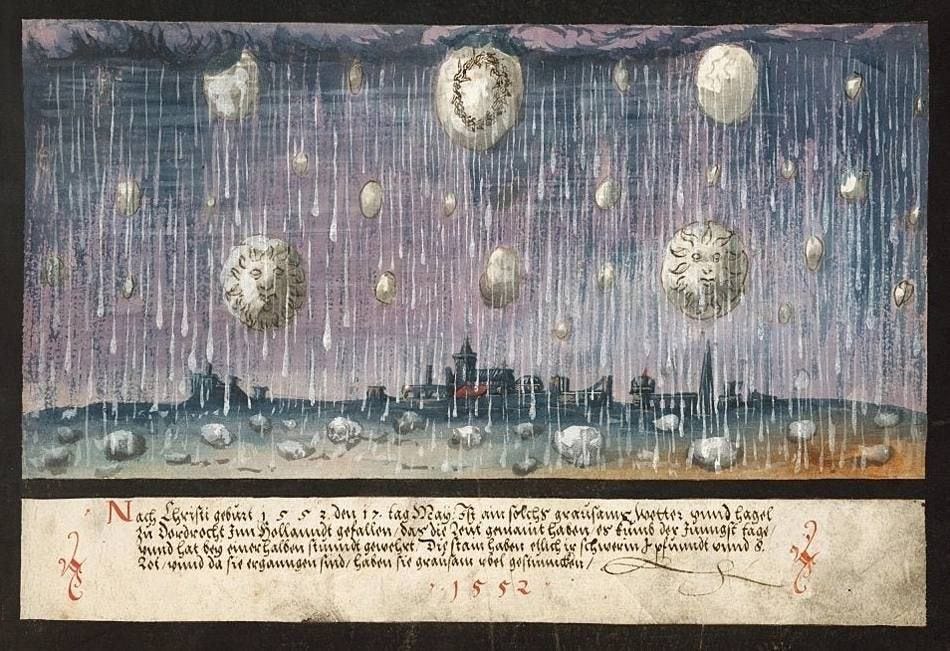 Nach Christi gebürt 1 5 5 2 den 17 tag May Ist ain solchs grausams wetter vnnd hagel
zu Dordrocht Inn Hollanndt gefallen, das die leut gemaint haben, es kumb der Jüngst tage,
vnnd hat bey einer halben stunndt gewehrt. Die stain haben ettlich ir schwerin pfunndt vnnd 8.
Lot, vnnd da sie erganngen sind, haben sie grausam vbel gestunncken,
1552